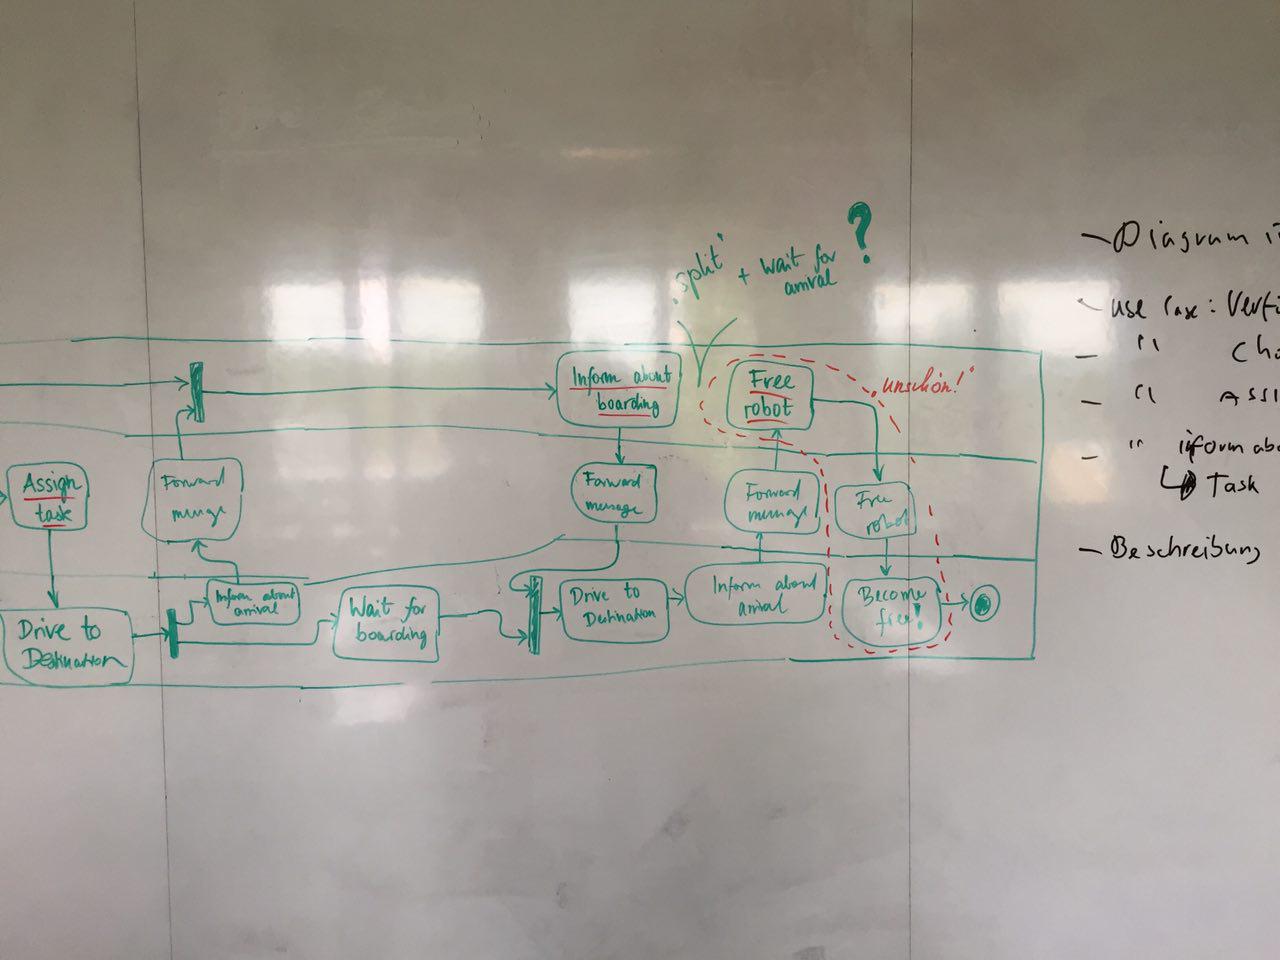 "split"
+ wait for
arrival
?
Inform about
boarding
Free
robot
"unschön!"
Assign
task
Forward
Forward
message
Forward
message
Free
robot
Drive to
Destination
Inform about
arrival
Wait for
boarding
Drive to
Destination
Inform about
arrival
Become
free!
- Diagram i
- use case: Verfü
- " Cha
- " Assi
- " inform abo
↳ Task
- Beschreibung